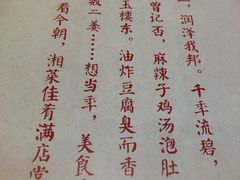 ，润泽我邦。千年流碧，
曾记否，麻辣子鸡汤泡肚
玉楼东。油炸豆腐臭而香
二姜……想当年，美食
看今朝，湘菜佳肴满店堂